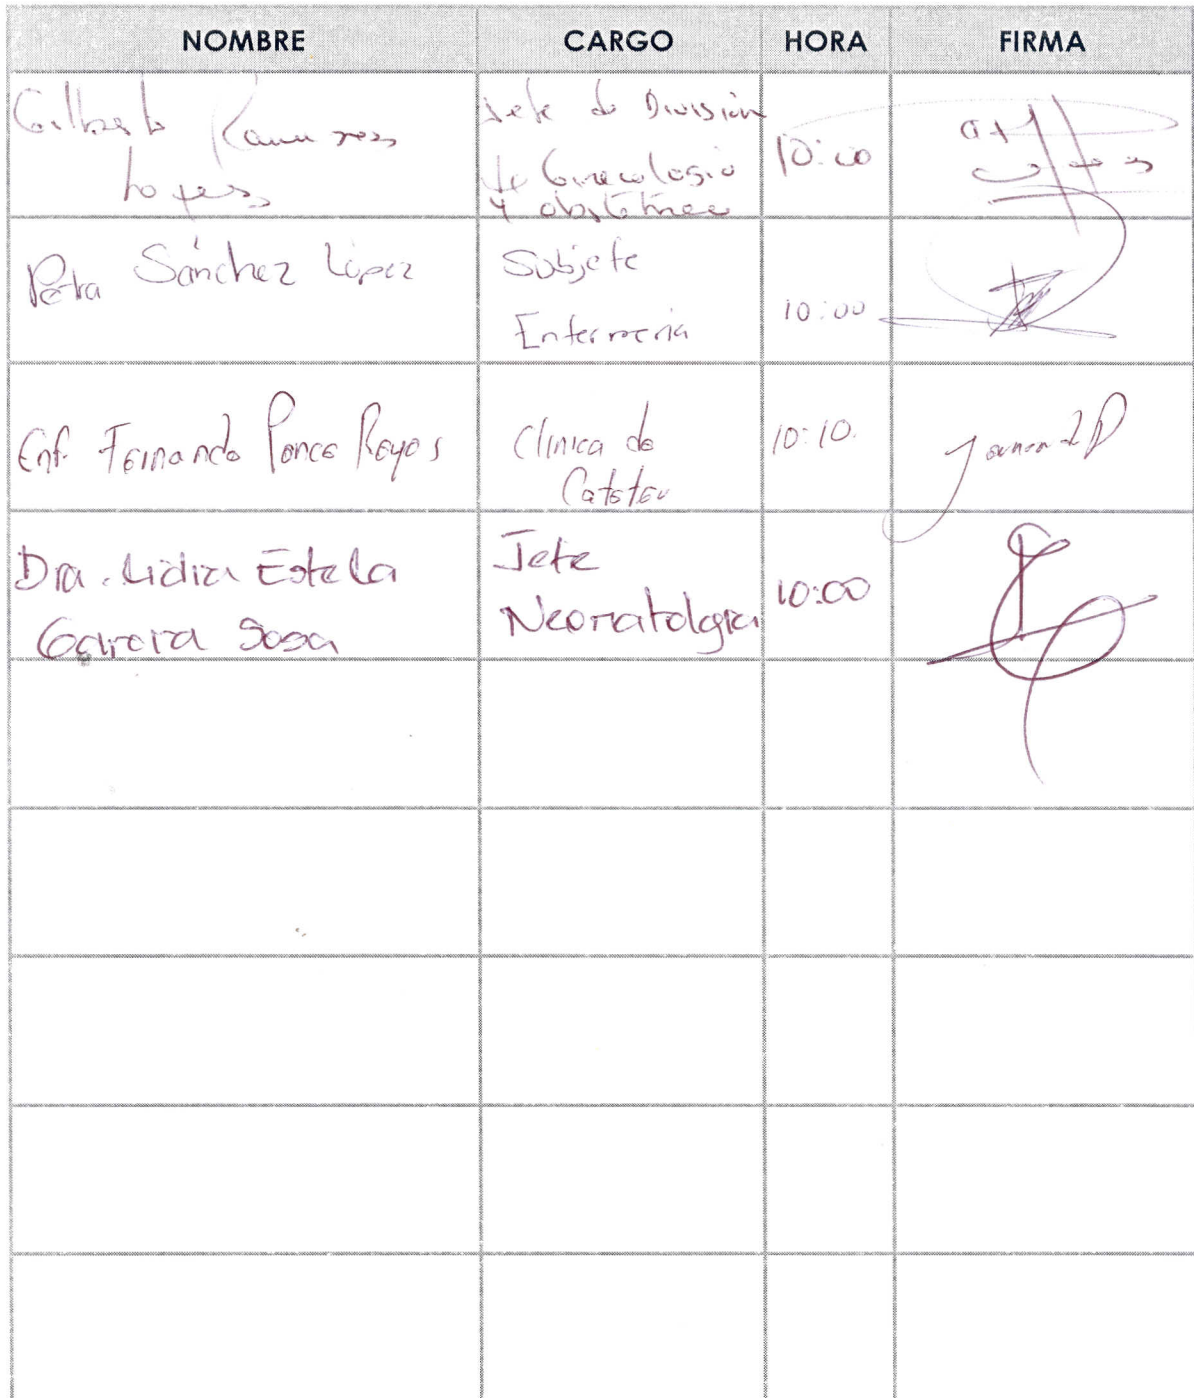 NOMBRE CARGO HORA FIRMA
Gilberto Ramirez
Lopez
Jefe de División
de Ginecologia
y obstetricia
10:00
Petra Sánchez López
Subjefe
Enfermeria
10:00
Enf. Fernando Ponce Reyes
Clinica de
Cateter
10:10.
Dra. Lidia Estela
Garcia Sosa
Jefe
Neonatologia
10:00